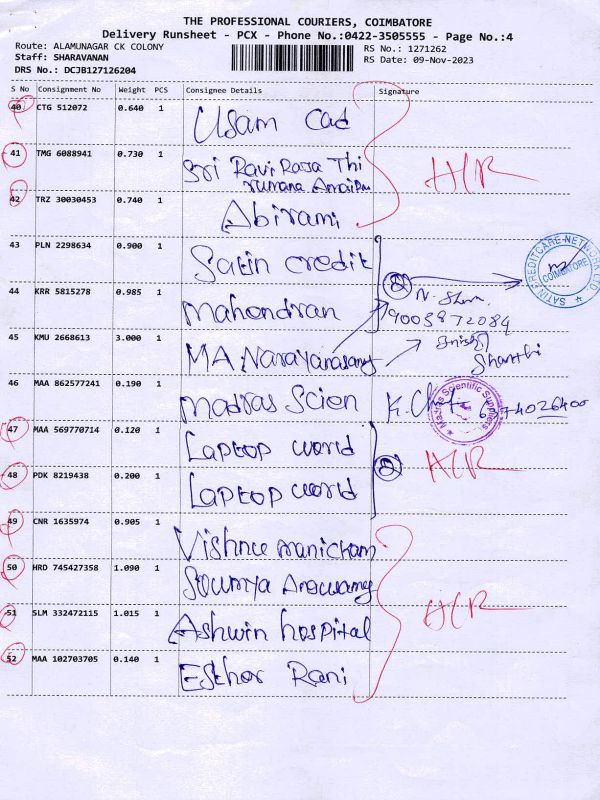 THE PROFESSIONAL COURIERS, COIMBATORE
Delivery Runsheet - PCX - Phone No.:0422-3505555 - Page No.:4
Route: ALAMUNAGAR CK COLONY
RS No.: 1271262
Staff: SHARAVANAN
RS Date: 09-Nov-2023
DRS No.: DCJB127126204
S No Consignment No Weight PCS Consignee Details Signature
40 CTG 512072 0.640 1 Usam Cad
41 TMG 6088941 0.730 1 Sri Ravi Raja Thi
42 TRZ 30030453 0.740 1 Abirami
43 PLN 2298634 0.900 1 Satin credit
SATIN CREDITCARE NETWORK LTD
COIMBATORE
44 KRR 5815278 0.985 1 Mahendran
45 KMU 2668613 3.000 1 MA Narayanasamy
Shanthi
46 MAA 862577241 0.190 1 Madras Scien
Madras Scientific Supplies
47 MAA 569770714 0.120 1 Laptop world
48 PDK 8219438 0.200 1 Laptop world
49 CNR 1635974 0.905 1 Vishnu Manickam
50 HRD 745427358 1.090 1 Sowmya
51 SLM 332472115 1.015 1 Ashwin hospital
52 MAA 102703705 0.140 1 Esther Rani